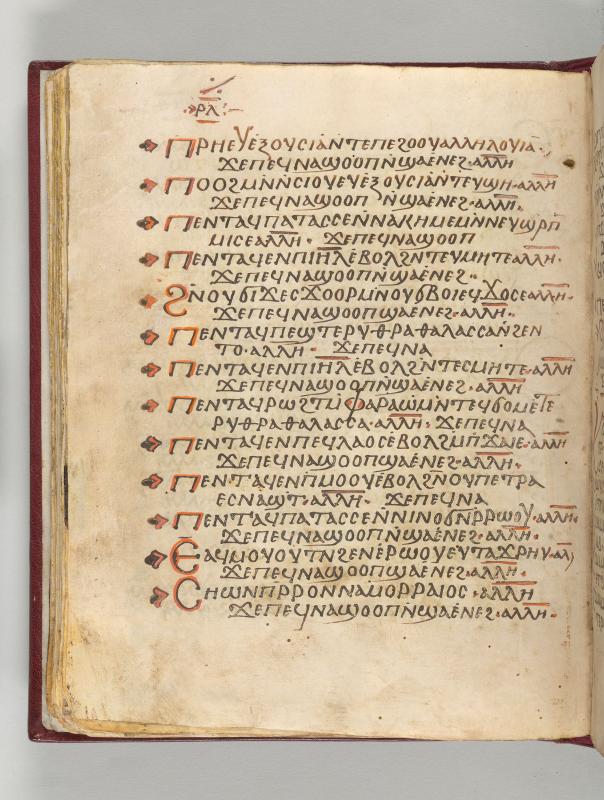 ⲣⲗ
ⲡⲣⲏⲉⲩⲉⲝⲟⲩⲥⲓⲁⲛⲧⲉⲡⲉϩⲟⲟⲩⲁⲗⲗⲏⲗⲟⲩⲓⲁ
ϫⲉⲡⲉϥⲛⲁϣⲟⲟⲡⲛϣⲁⲉⲛⲉϩ·ⲁⲗⲗⲏ
ⲡⲟⲟϩⲙⲛⲛⲥⲓⲟⲩⲉⲩⲉⲝⲟⲩⲥⲓⲁⲛⲧⲉⲩϣⲏ·ⲁⲗⲗⲏ
ϫⲉⲡⲉϥⲛⲁϣⲟⲟⲡ ⲛϣⲁⲉⲛⲉϩ·ⲁⲗⲗⲏ·
ⲡⲉⲛⲧⲁϥⲡⲁⲧⲁⲥⲥⲉⲛⲛⲁⲕⲏⲙⲉⲙⲛⲛⲉⲩϣⲣⲡ
ⲙⲓⲥⲉⲁⲗⲗⲏ· ϫⲉⲡⲉϥⲛⲁϣⲟⲟⲡ
ⲡⲉⲛⲧⲁϥⲉⲛⲡⲓⲏⲗⲉⲃⲟⲗϩⲛⲧⲉⲩⲙⲏⲧⲉⲁⲗⲗⲏ·
ϫⲉⲡⲉϥⲛⲁϣⲟⲟⲡⲛϣⲁⲉⲛⲉϩ·
ϩⲛⲟⲩϭⲓϫⲉⲥϫⲟⲟⲣⲙⲛⲟⲩϭⲃⲟⲓⲉϥϫⲟⲥⲉⲁⲗⲗⲏ·
ϫⲉⲡⲉϥⲛⲁϣⲟⲟⲡϣⲁⲉⲛⲉϩ·ⲁⲗⲗⲏ·
ⲡⲉⲛⲧⲁϥⲡⲉϣⲧⲉⲣⲩⲑⲣⲁⲑⲁⲗⲁⲥⲥⲁⲛϩⲉⲛ
ⲧⲟ·ⲁⲗⲗⲏ· ϫⲉⲡⲉϥⲛⲁ
ⲡⲉⲛⲧⲁϥⲉⲛⲡⲓⲏⲗⲉⲃⲟⲗϩⲛⲧⲉⲥⲙⲏⲧⲉ·ⲁⲗⲗⲏ
ϫⲉⲡⲉϥⲛⲁϣⲟⲟⲡⲛϣⲁⲉⲛⲉϩ·ⲁⲗⲗⲏ
ⲡⲉⲛⲧⲁϥⲣⲱϩⲧⲙⲫⲁⲣⲁⲱⲙⲛⲧⲉϥϭⲟⲙⲉⲧⲉ
ⲣⲩⲑⲣⲁⲑⲁⲗⲁⲥⲥⲁ·ⲁⲗⲗⲏ· ϫⲉⲡⲉϥⲛⲁ
ⲡⲉⲛⲧⲁϥⲉⲛⲡⲉϥⲗⲁⲟⲥⲉⲃⲟⲗϩⲙⲡϫⲁⲓⲉ·ⲁⲗⲗⲏ
ϫⲉⲡⲉϥⲛⲁϣⲟⲟⲡϣⲁⲉⲛⲉϩ·ⲁⲗⲗⲏ·
ⲡⲉⲛⲧⲁϥⲉⲛⲡⲙⲟⲟⲩⲉⲃⲟⲗϩⲛⲟⲩⲡⲉⲧⲣⲁ
ⲉⲥⲛⲁϣⲧ·ⲁⲗⲗⲏ· ϫⲉⲡⲉϥⲛⲁ
ⲡⲉⲛⲧⲁϥⲡⲁⲧⲁⲥⲥⲉⲛⲛⲓⲛⲟϭⲛⲣⲣⲱⲟⲩ·ⲁⲗⲗⲏ·
ϫⲉⲡⲉϥⲛⲁϣⲟⲟⲡϣⲁⲉⲛⲉϩ·ⲁⲗⲗⲏ·
ⲉⲁϥⲙⲟⲩⲟⲩⲧⲛϩⲉⲛⲉⲣⲱⲟⲩⲉⲩⲧⲁϫⲣⲏⲩ·ⲁⲗ
ϫⲉⲡⲉϥⲛⲁϣⲟⲟⲡϣⲁⲉⲛⲉϩ·ⲁⲗⲗⲏ·
ⲥⲏⲱⲛⲡⲣⲣⲟⲛⲛⲁⲙⲟⲣⲣⲁⲓⲟⲥ·ⲁⲗⲗⲏ
ϫⲉⲡⲉϥⲛⲁϣⲟⲟⲡⲛϣⲁⲉⲛⲉϩ·ⲁⲗⲗⲏ·